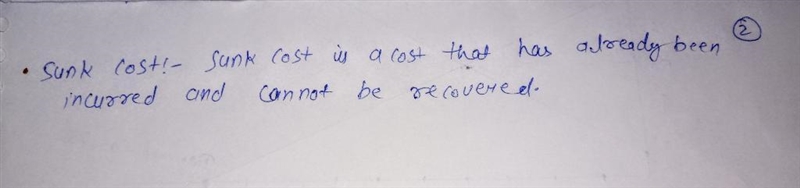 ②
• Sunk Cost:- Sunk Cost is a cost that has already been
incurred and cannot be recovered.